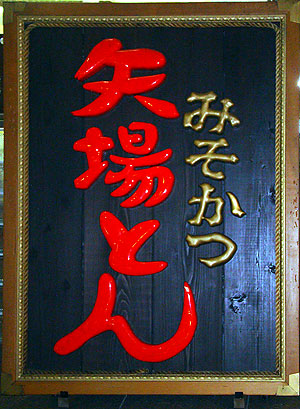 みそかつ
矢場とん